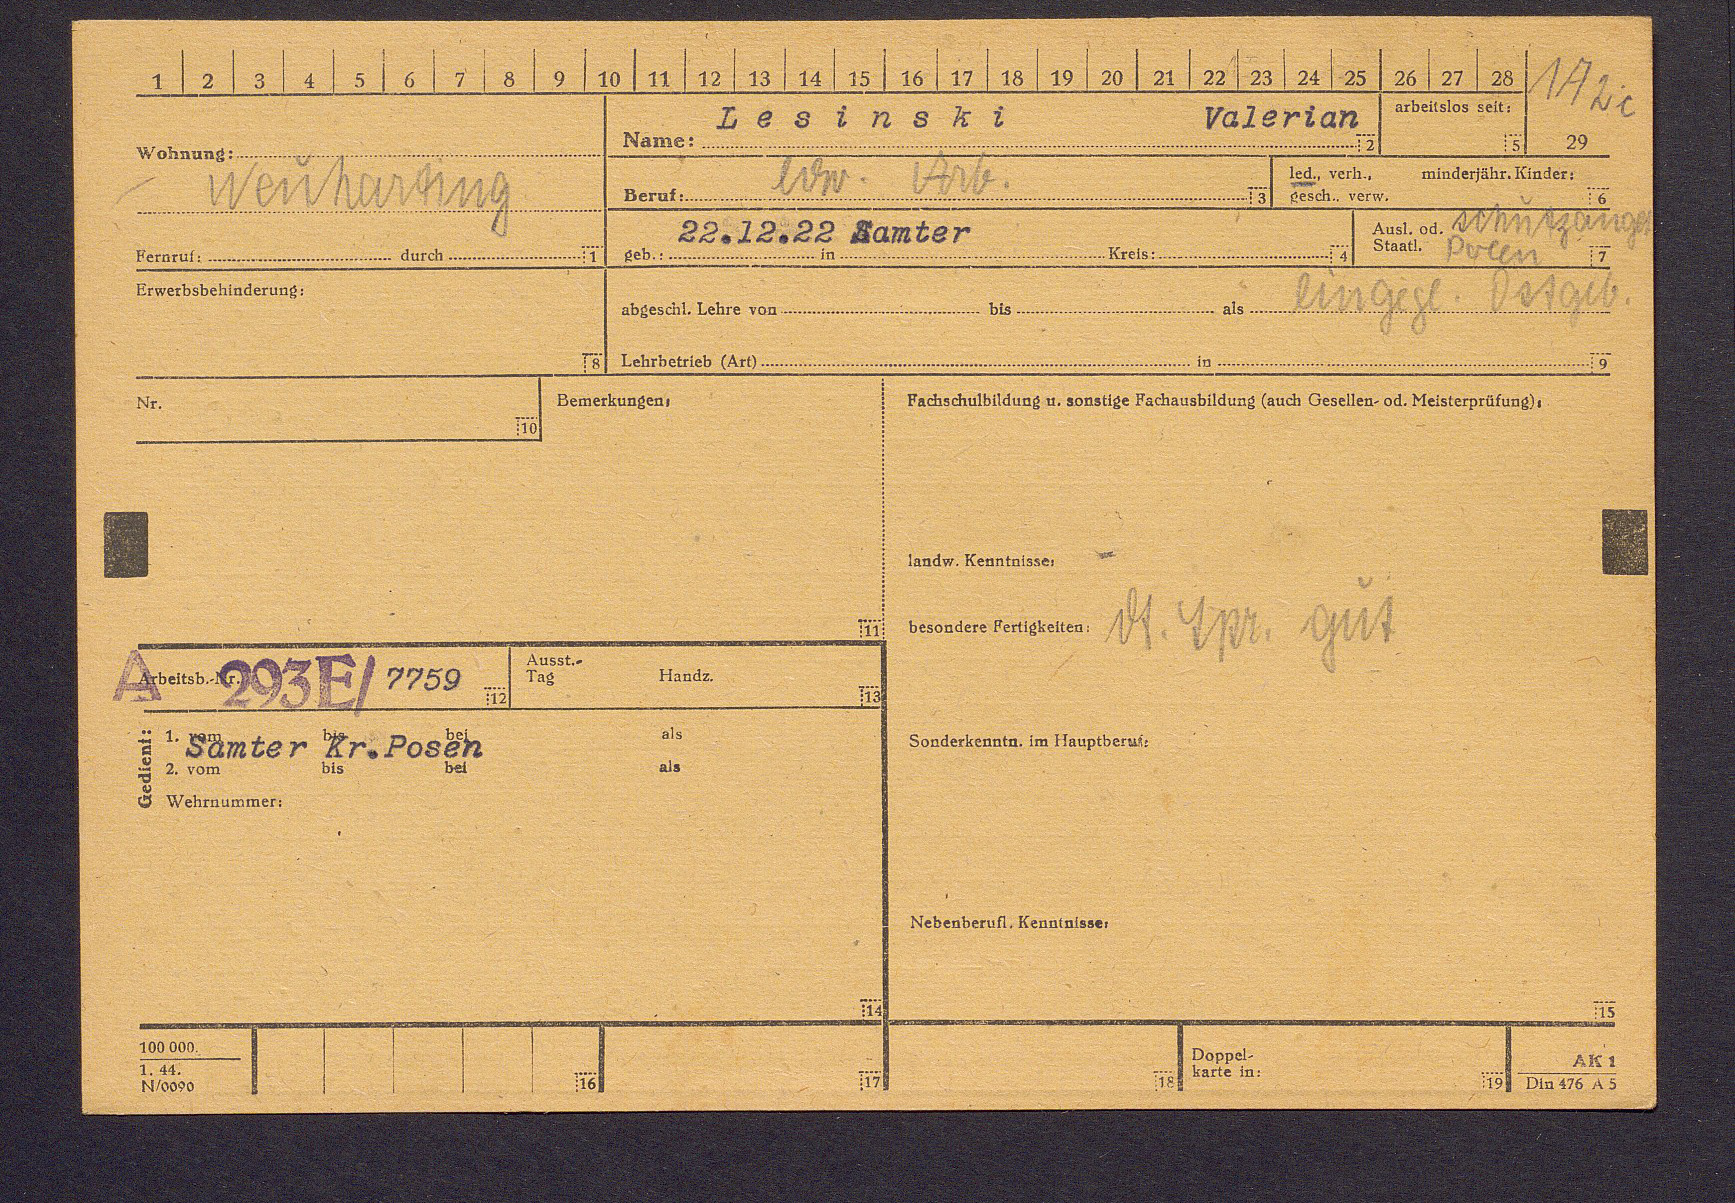 1 2 3 4 5 6 7 8 9 10 11 12 13 14 15 16 17 18 19 20 21 22 23 24 25 26 27 28
Name: Lesinski Valerian 2
arbeitslos seit: 5
29
Wohnung:
Neuharting
Beruf: ldw. Arb. 3
led., verh., minderjähr. Kinder:
gesch., verw. 6
22.12.22 Samter
geb.: in Kreis: 4
Ausl. od. Schutzanget
Staatl. Polen 7
Fernruf: durch 1
Erwerbsbehinderung:
8
eingegl. Ostgeb.
abgeschl. Lehre von bis als
Lehrbetrieb (Art) in 9
Nr.
10
Bemerkungen:
11
Fachschulbildung u. sonstige Fachausbildung (auch Gesellen- od. Meisterprüfung):
landw. Kenntnisse: -
besondere Fertigkeiten: dt. Spr. gut
A Arbeitsb.-Nr. 293E/ 7759 12
Ausst.-
Tag Handz.
13
Gedient:
1. vom bis bei als
Samter Kr.Posen
2. vom bis bei als
Wehrnummer:
14
Sonderkenntn. im Hauptberuf:
Nebenberufl. Kenntnisse:
15
100 000.
1. 44.
N/0090
16
17
18
Doppel-
karte in:
19
AK 1
Din 476 A 5